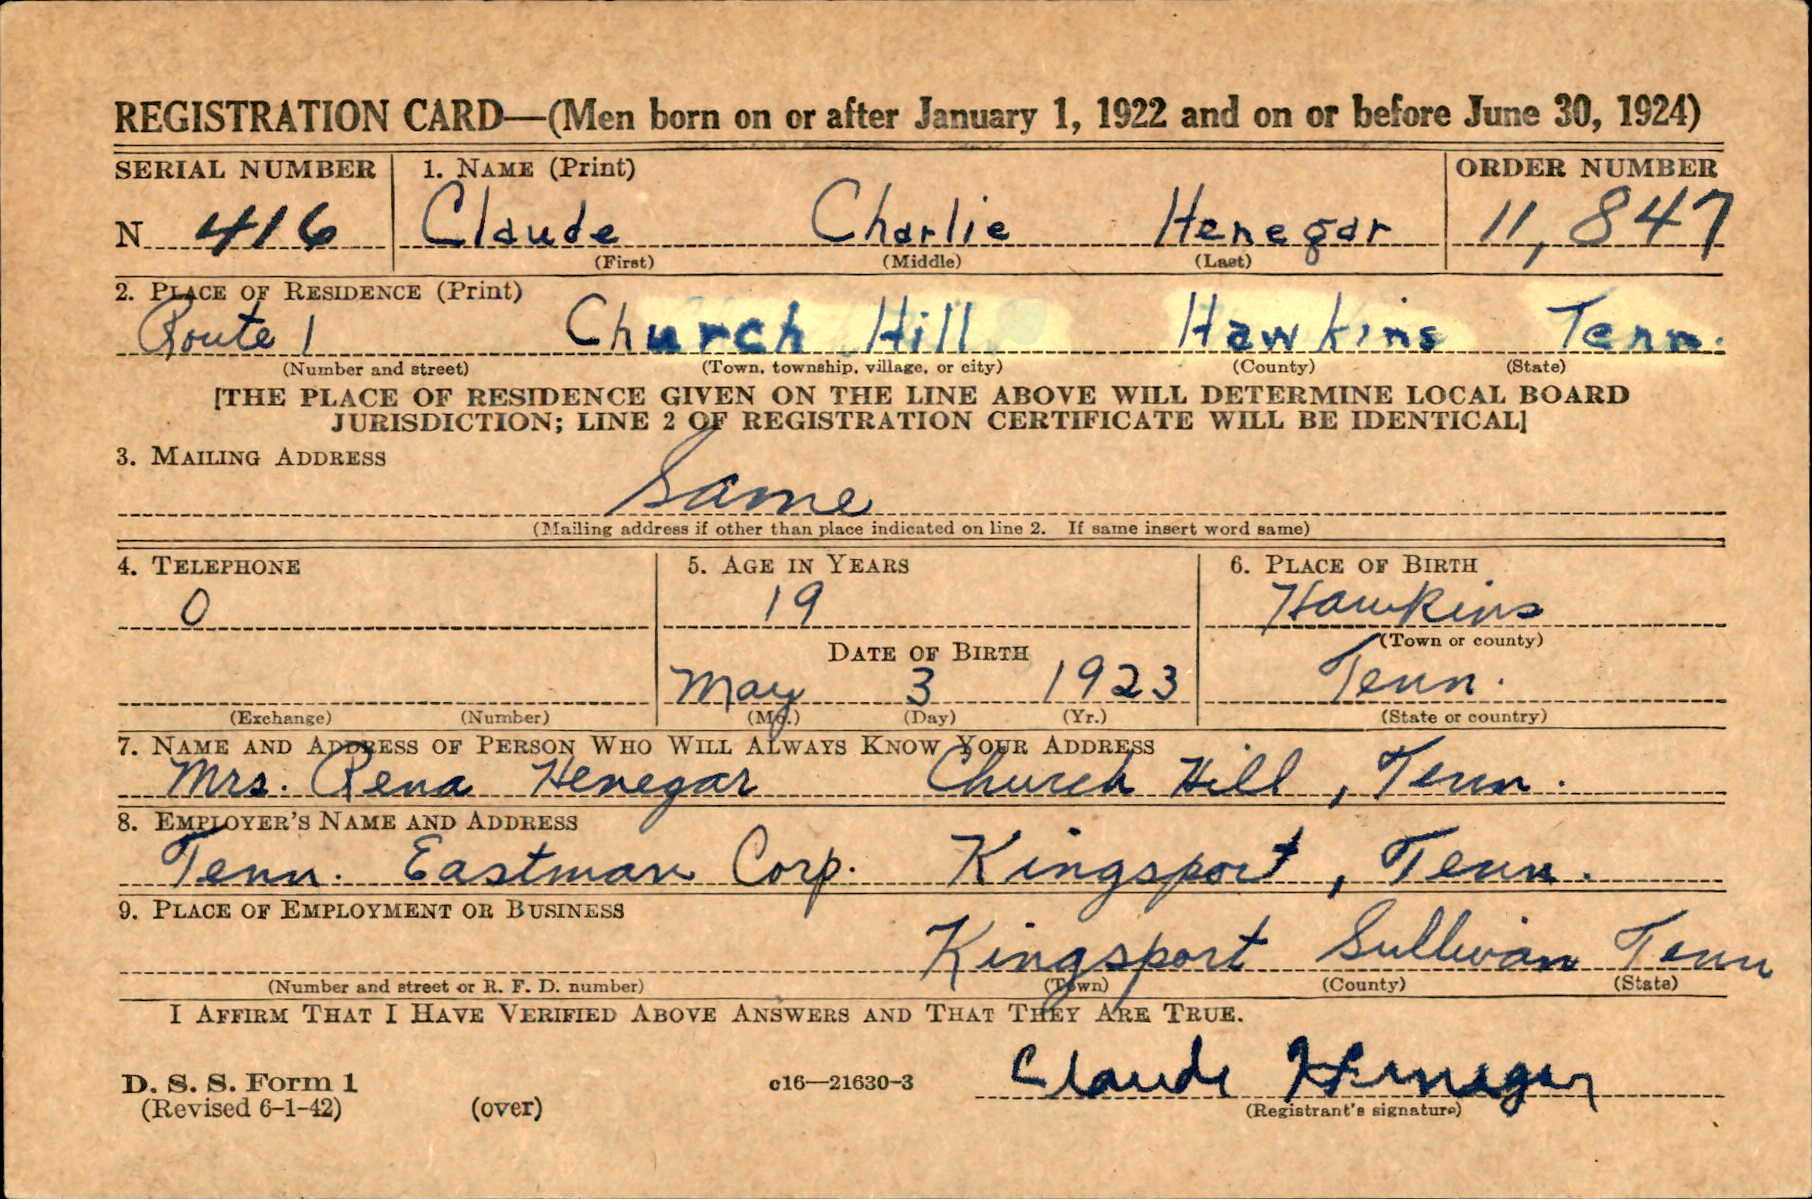 REGISTRATION CARD—(Men born on or after January 1, 1922 and on or before June 30, 1924)
SERIAL NUMBER 1. NAME (Print) ORDER NUMBER
N 416 Claude Charlie Henegar 11,847
(First) (Middle) (Last)
2. PLACE OF RESIDENCE (Print)
Route 1 Church Hill Hawkins Tenn.
(Number and street) (Town, township, village, or city) (County) (State)
[THE PLACE OF RESIDENCE GIVEN ON THE LINE ABOVE WILL DETERMINE LOCAL BOARD
JURISDICTION; LINE 2 OF REGISTRATION CERTIFICATE WILL BE IDENTICAL]
3. MAILING ADDRESS
Same
(Mailing address if other than place indicated on line 2. If same insert word same)
4. TELEPHONE 5. AGE IN YEARS 6. PLACE OF BIRTH
0 19 Hawkins
(Town or county)
DATE OF BIRTH
May 3 1923 Tenn.
(Exchange) (Number) (Mo.) (Day) (Yr.) (State or country)
7. NAME AND ADDRESS OF PERSON WHO WILL ALWAYS KNOW YOUR ADDRESS
Mrs. Rena Henegar Church Hill, Tenn.
8. EMPLOYER'S NAME AND ADDRESS
Tenn. Eastman Corp. Kingsport, Tenn.
9. PLACE OF EMPLOYMENT OR BUSINESS
Kingsport Sullivan Tenn
(Number and street or R. F. D. number) (Town) (County) (State)
I AFFIRM THAT I HAVE VERIFIED ABOVE ANSWERS AND THAT THEY ARE TRUE.
Claude Henegar
D. S. S. Form 1 c16—21630-3
(Revised 6-1-42) (over) (Registrant's signature)